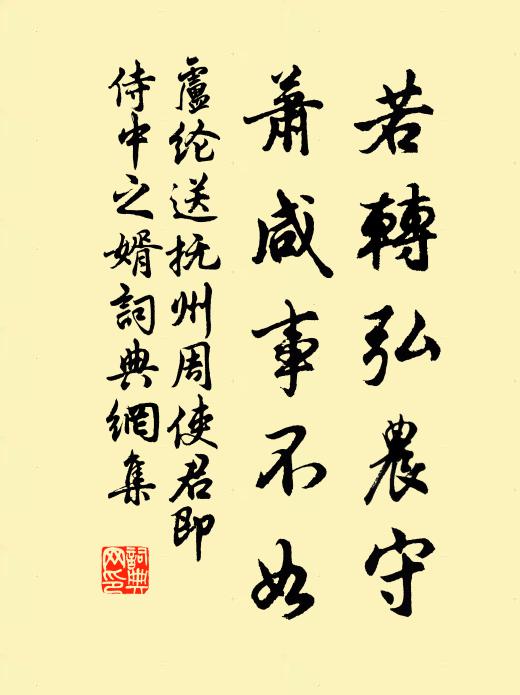 若轉弘農守
蕭咸事不如
盧纶送抚州周使君即
侍中之婿詞典網集
詞典网印